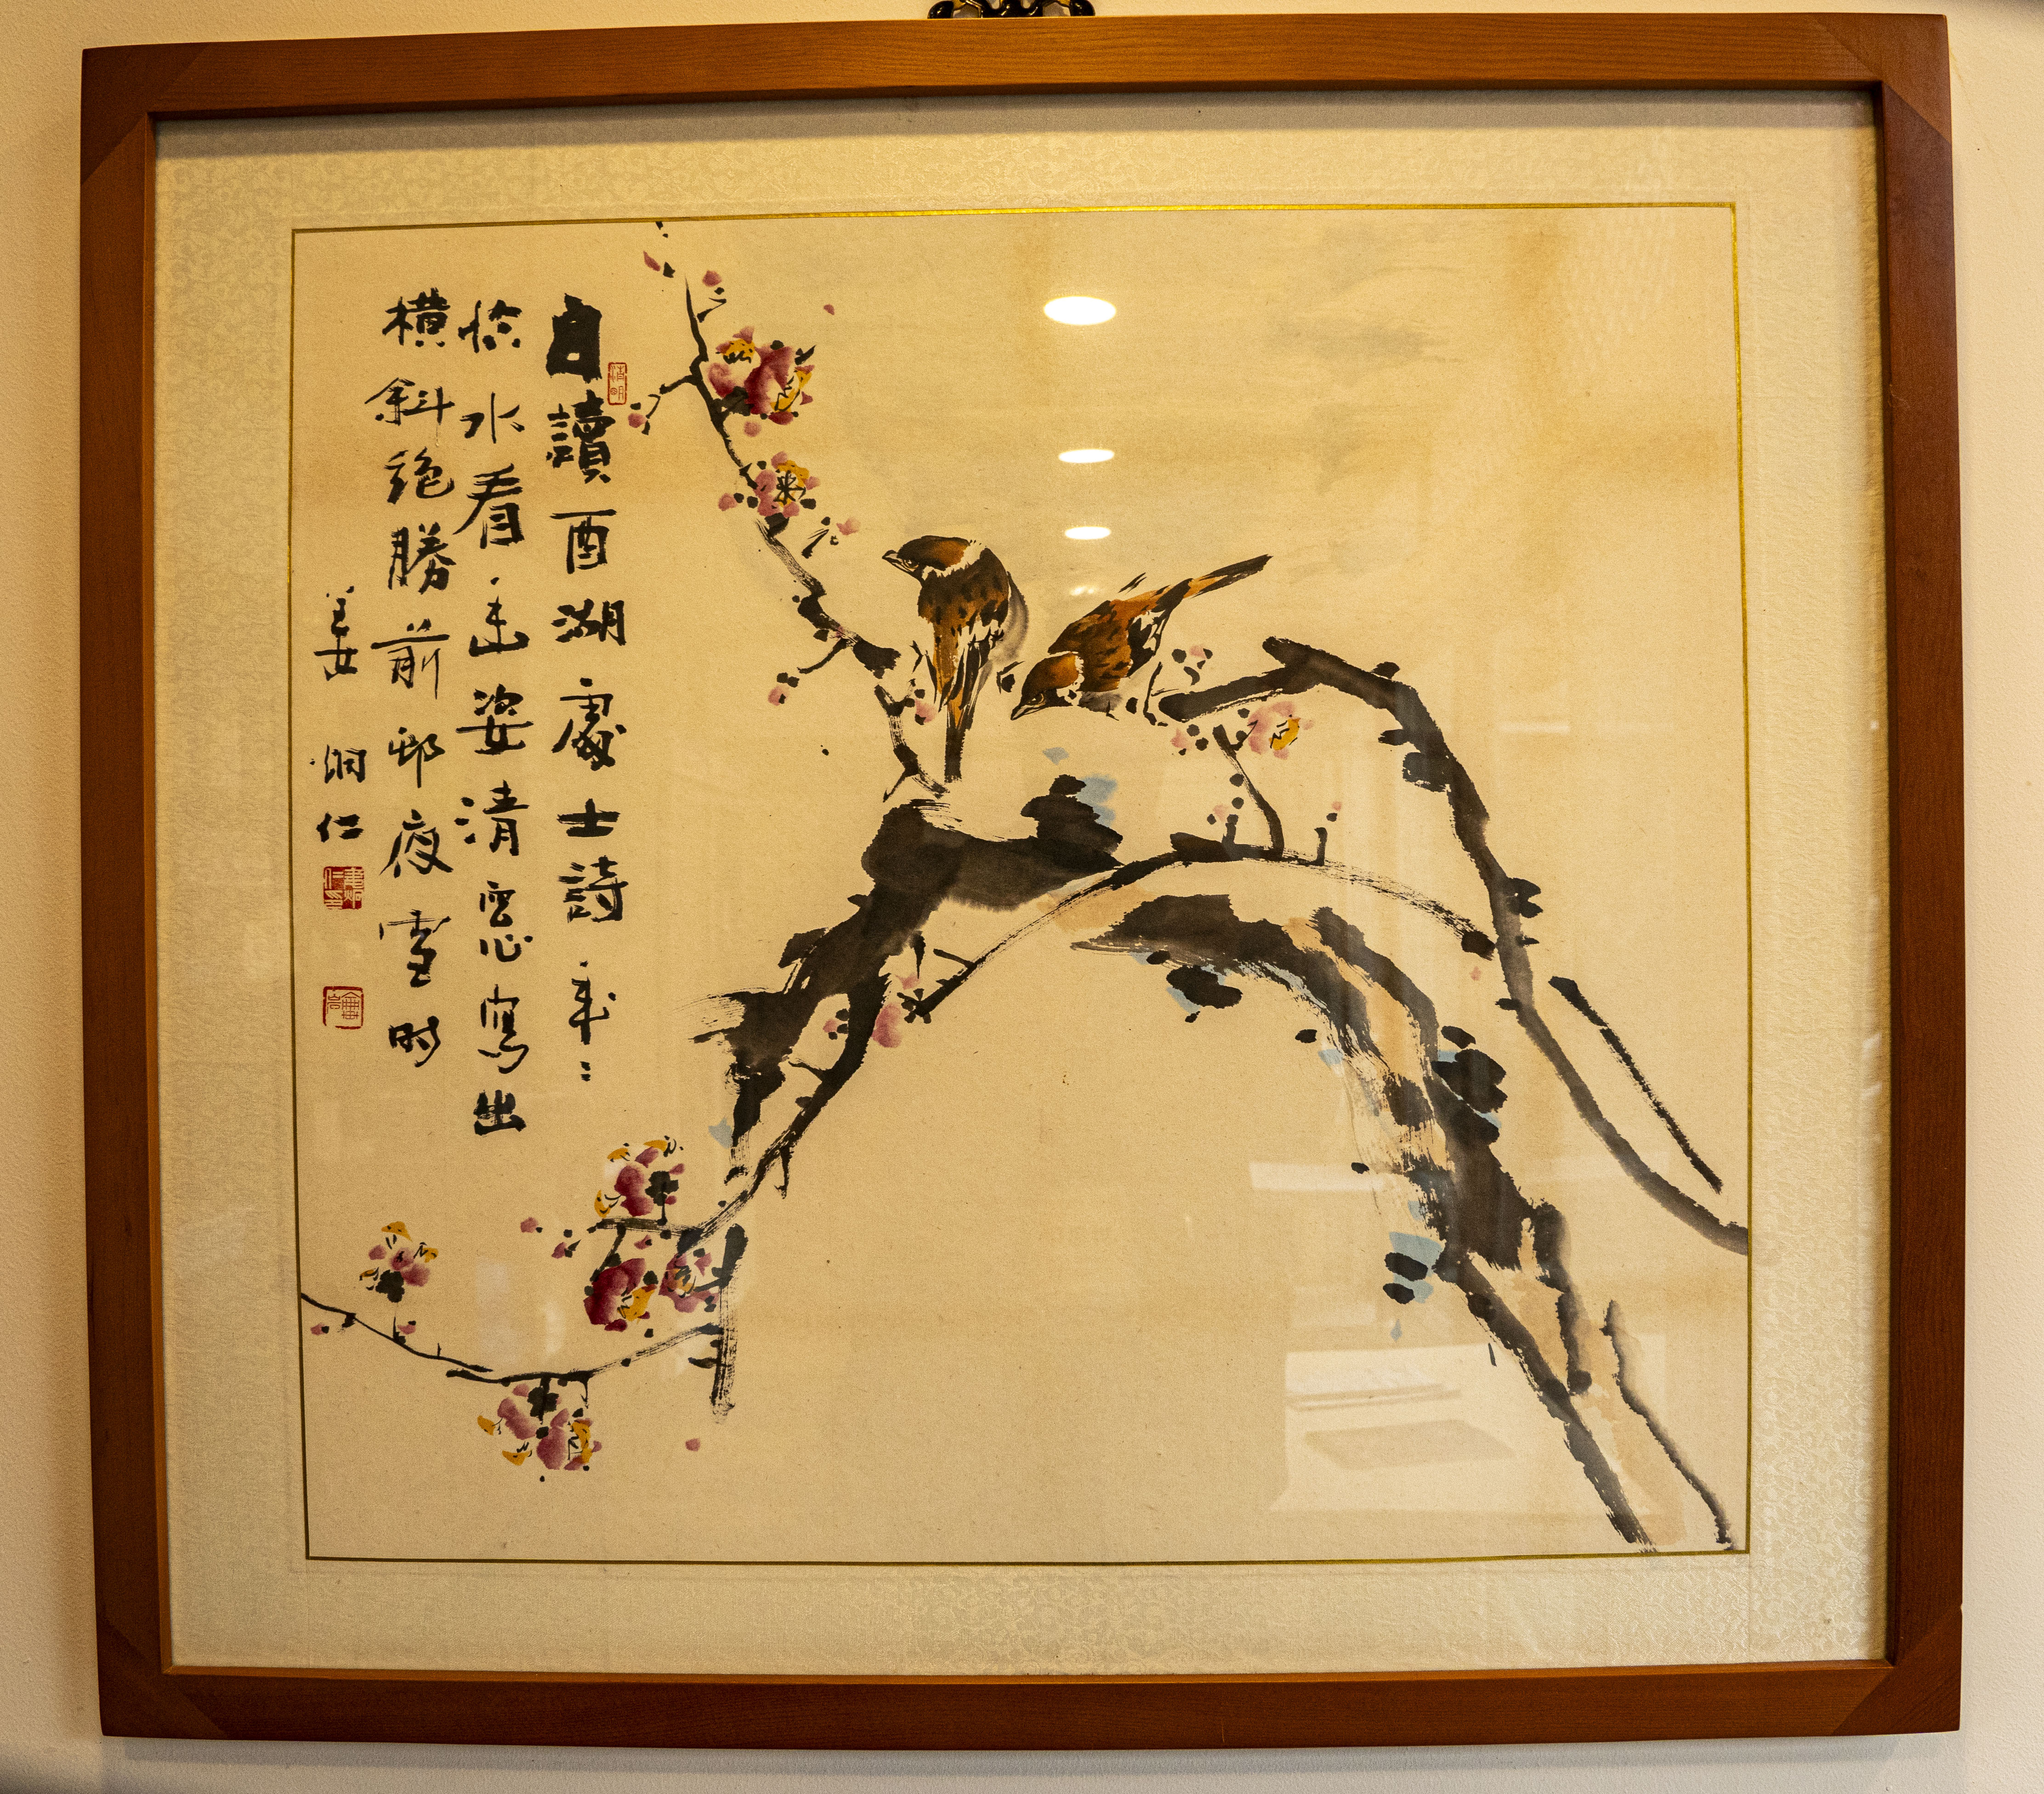 自讀西湖處士詩年〻
临水看幽姿清窓寫出
橫斜絕勝前邨夜雪时
姜 炯仁